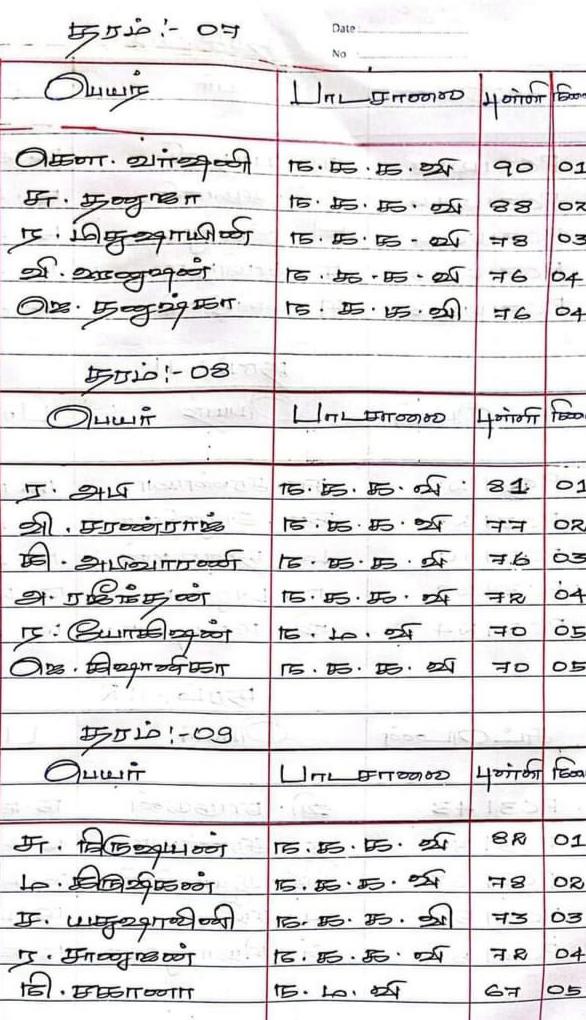 தரம் :- 07
Date :
No :
பெயர் பாடசாலை புள்ளி நிலை
கௌ. வர்ஷனி ந.க.க.வி 90 01
ச. தனுஜா ந.க.க.வி 88 02
ந. மிதுஷாயினி ந.க.க.வி 78 03
வி. வானுஷன் ந.க.க.வி 76 04
ஜெ. தனுஷ்கா ந.க.க.வி 76 04
தரம் :- 08
பெயர் பாடசாலை புள்ளி நிலை
ர. அபி ந.க.க.வி 81 01
வி. சரண்ராஜ் ந.க.க.வி 77 02
கி. அபிவாரணி ந.க.க.வி 76 03
அ. ரஜீந்தன் ந.க.க.வி 72 04
ந. யோகிஷன் ந.ம.வி 70 05
ஜெ. கிஷானிகா ந.க.க.வி 70 05
தரம் :- 09
பெயர் பாடசாலை புள்ளி நிலை
ச. நிருஷயன் ந.க.க.வி 82 01
ம. கிருஷிகன் ந.க.க.வி 78 02
ச. யதுஷாலினி ந.க.க.வி 73 03
ர. சானுஜன் ந.க.க.வி 72 04
நி. சகானா ந.ம.வி 67 05